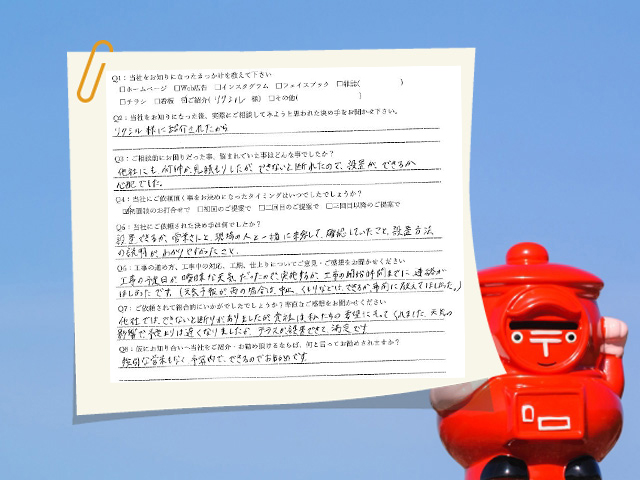 Q1：当社をお知りになったきっかけを教えて下さい
□ホームページ □Web広告 □インスタグラム □フェイスブック □雑誌( )
□チラシ □看板 ☑ご紹介(リクシル 様) □その他( )
Q2：当社をお知りになった後、実際にご相談してみようと思われた決め手をお聞かせ下さい。
リクシル様に紹介されたから
Q3：ご相談前にお困りだった事、悩まれていた事はどんな事でしたか？
他社にも何件か見積もりしたが、できないと断れたので、設置が、できるか
心配でした。
Q4：当社にご依頼頂く事をお決めになったタイミングはいつでしたでしょうか？
☑初面談のお打合せで □初回のご提案で □二回目のご提案で □三回目以降のご提案で
Q5：当社にご依頼された決め手は何でしたか？
設置できるか、営業さんと、現場の人と一緒に来訪して、確認していたこと、設置方法
の説明が、わかりやすかったこと、
Q6：工事の進め方、工事中の対応、工期、仕上りについてご意見・ご感想をお聞かせください
工事の予定日が曖昧な天気だったので、実施するか、工事の開始時前までに、連絡が
ほしかったです。(天気予報が雨の場合は、中止、くもりなどは、できるか事前に教えてほしかった。)
Q7：ご依頼されて総合的にいかがでしたでしょうか？率直なご感想をお聞かせください
他社では、できないと断りがありましたが、貴社は、私たちの希望にそってくれました、天気の
影響で仕上りは遅くなりましたが、テラスが設置できて満足です
Q8：仮にお知り合いへ当社をご紹介・お勧め頂けるならば、何と言ってお勧めされますか？
強引な営業もなく予算内で、できるのでお勧めです